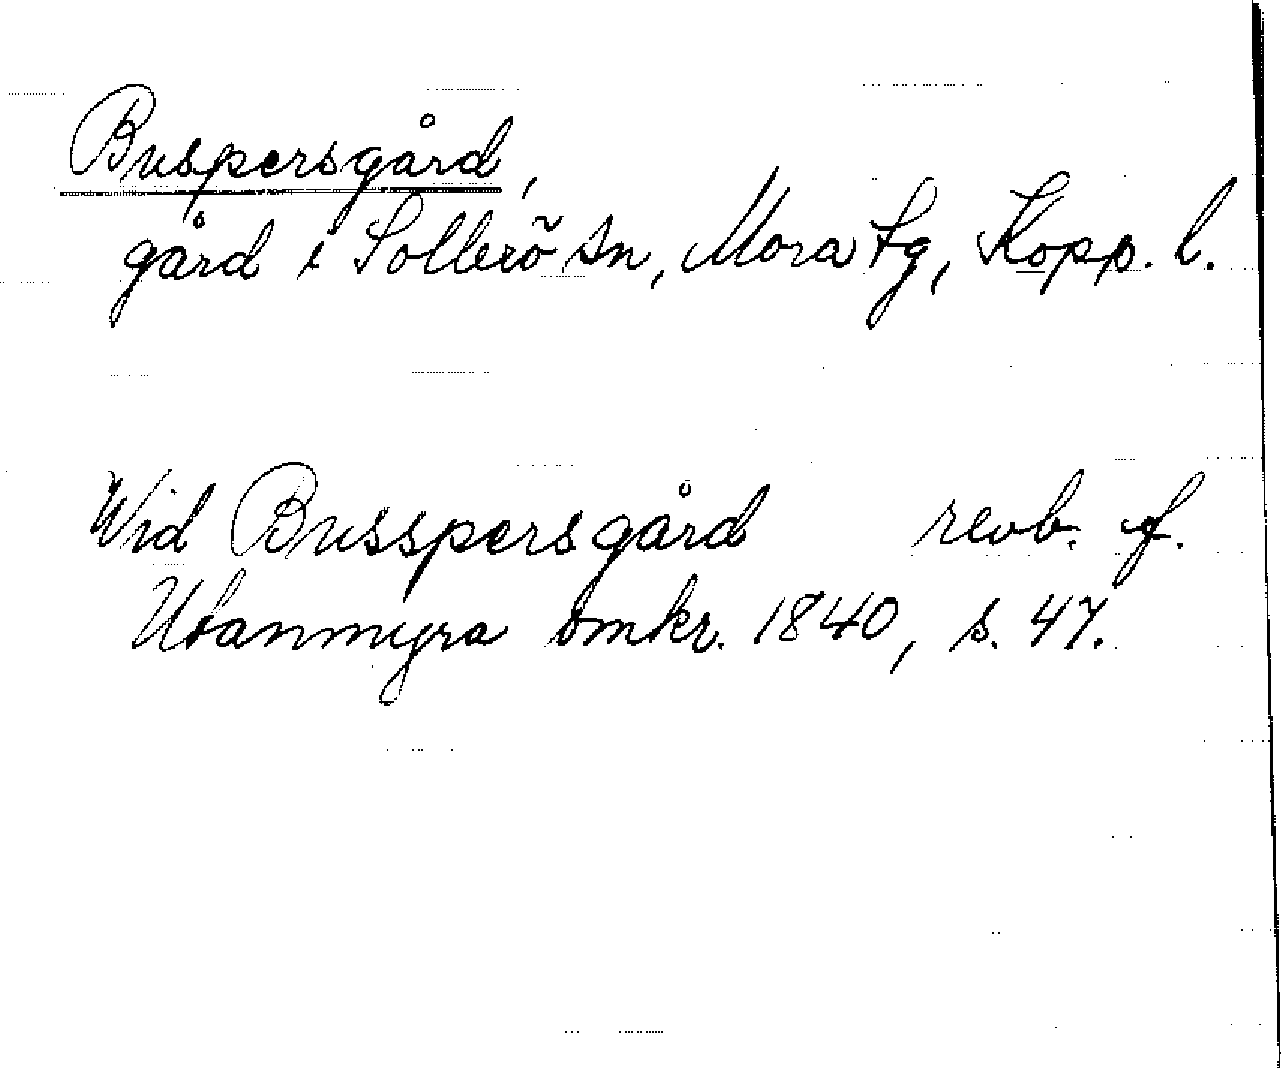 Buspersgård,
gård i Sollerö sn, Mora tg, Kopp. l.
Wid Busspersgård revb. f.
Utanmyra omkr. 1840, s. 47.